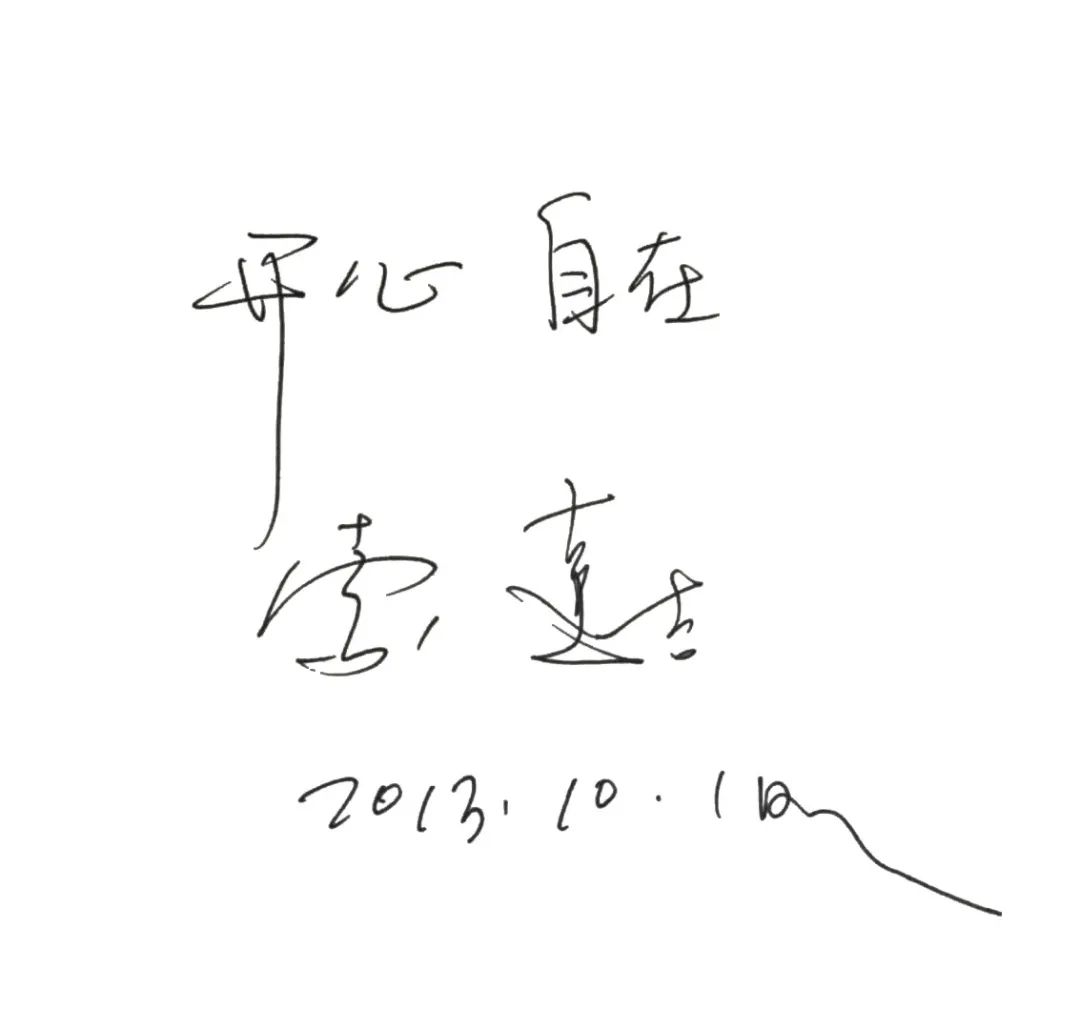 开心 自在
索达吉
2013.10.1日